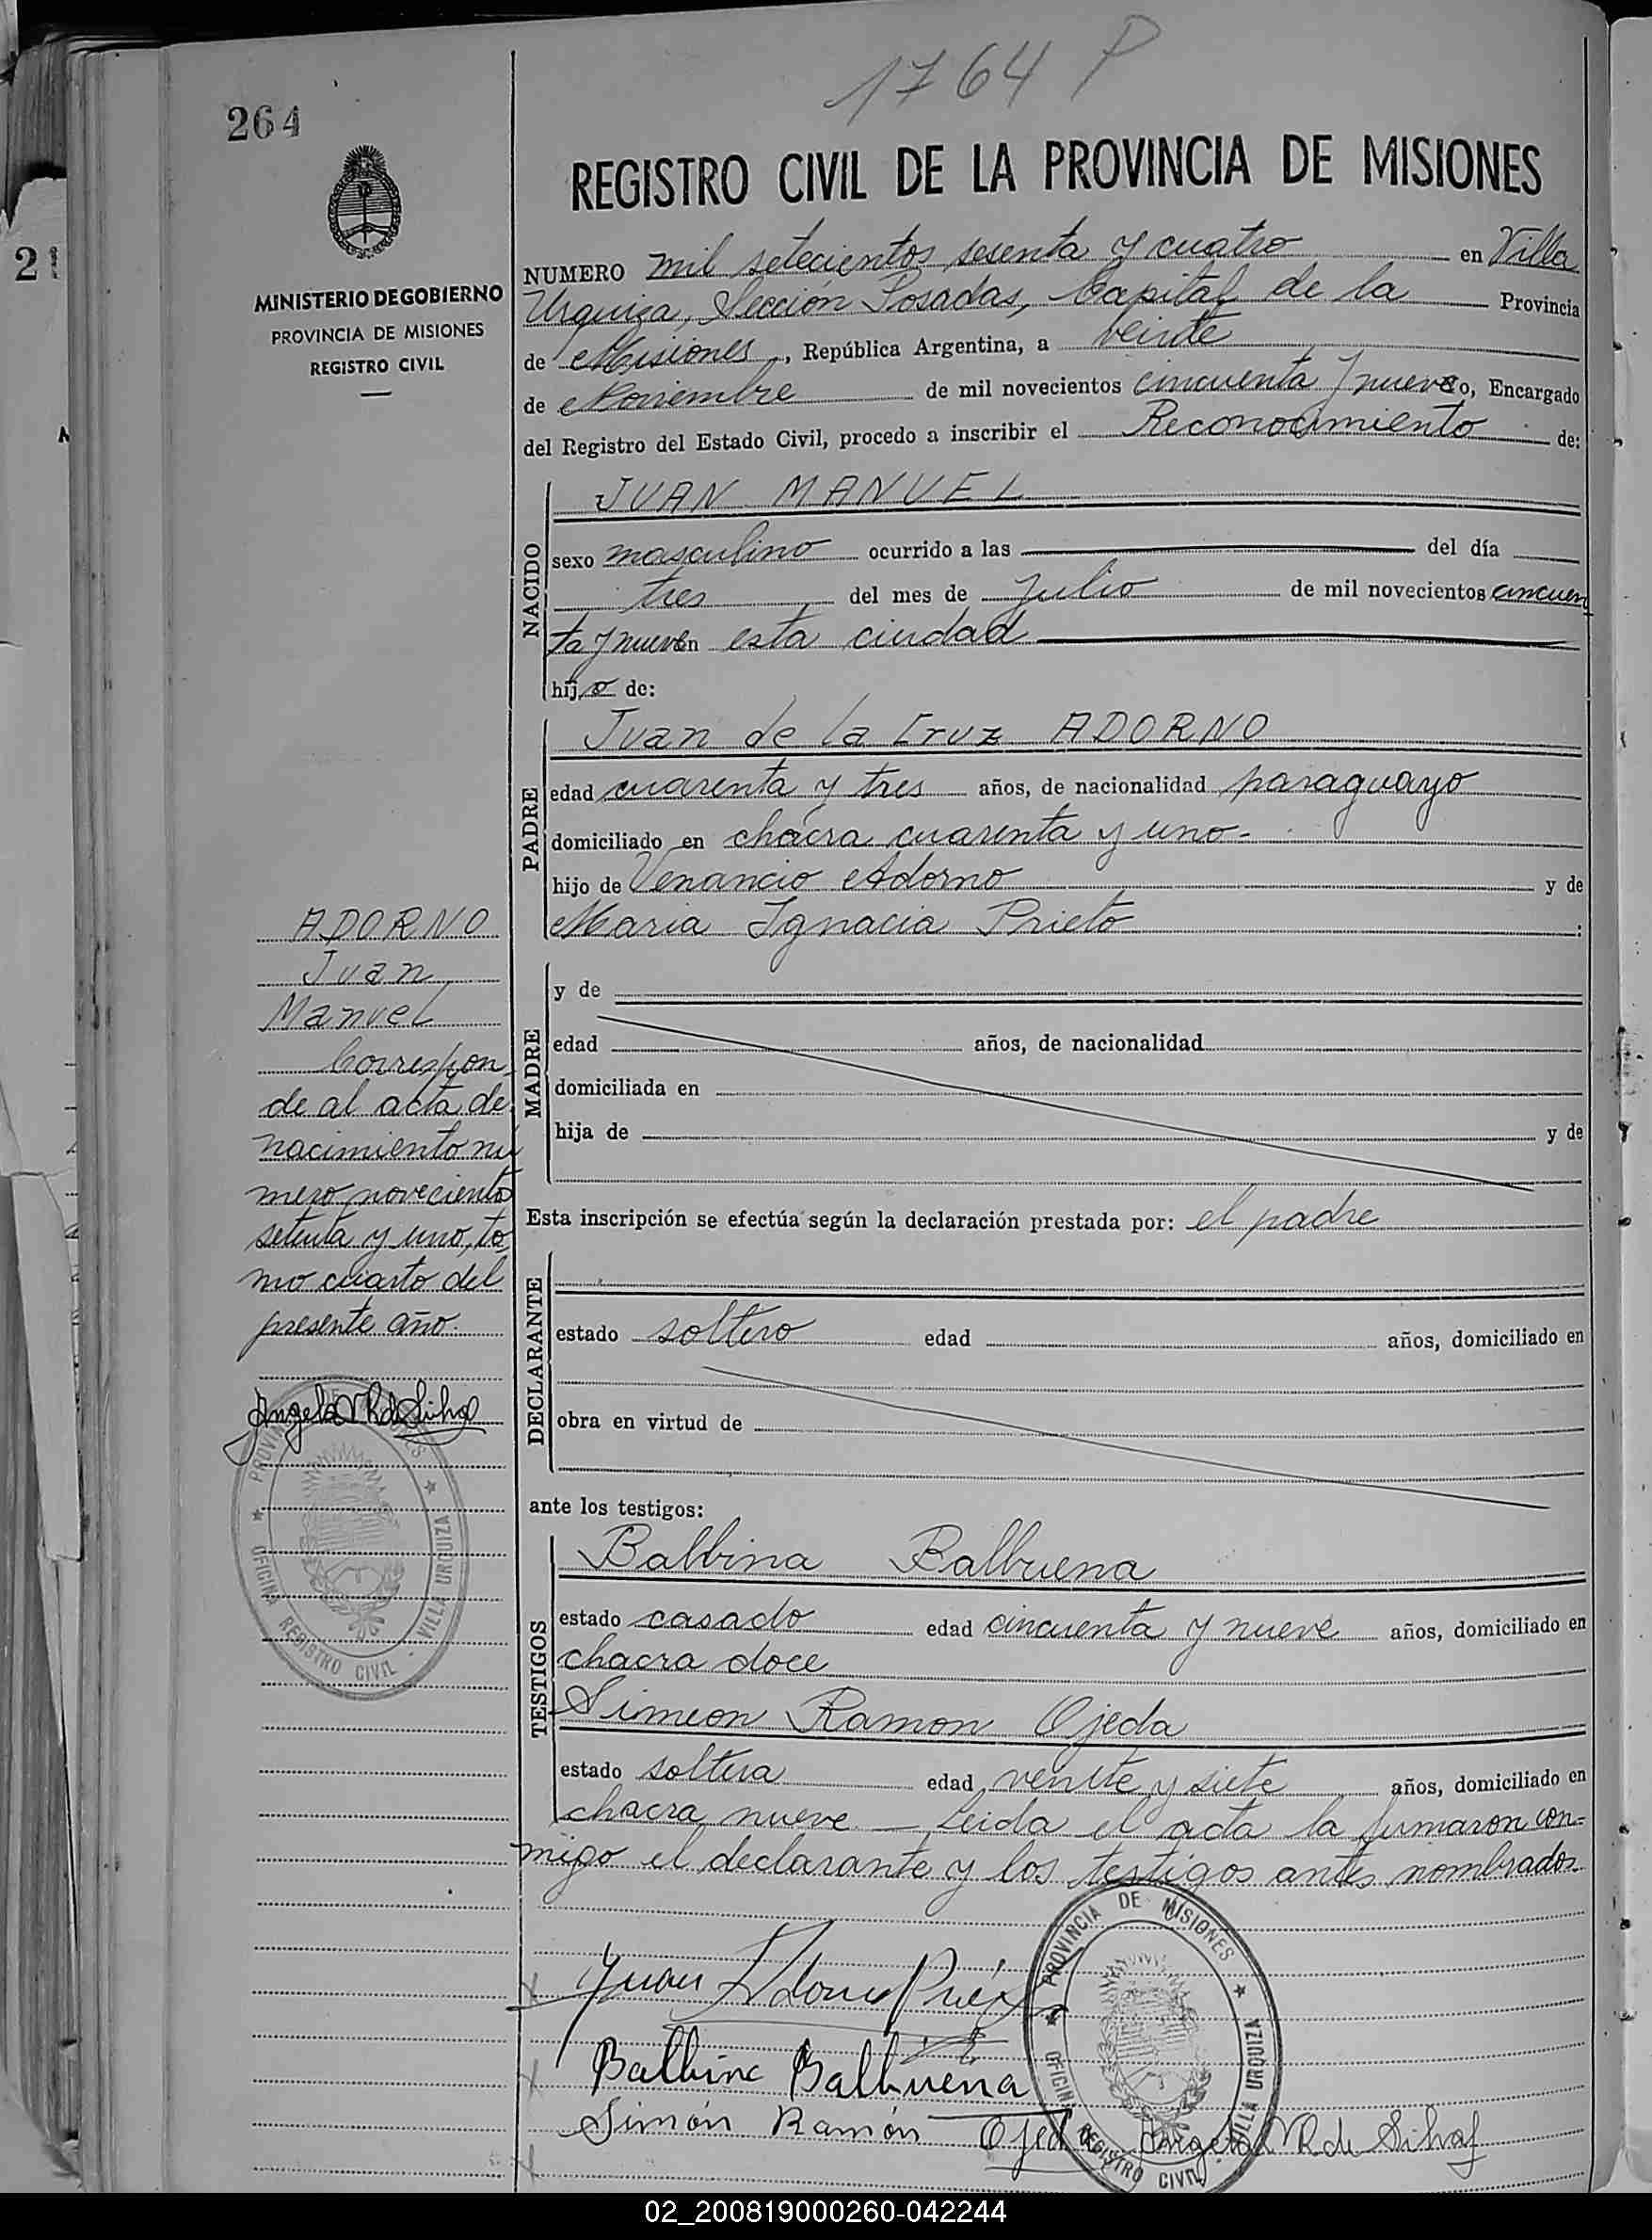 1764 P
264
REGISTRO CIVIL DE LA PROVINCIA DE MISIONES
MINISTERIO DE GOBIERNO
PROVINCIA DE MISIONES
REGISTRO CIVIL
NUMERO mil setecientos sesenta y cuatro en Villa
Urquiza, Sección Posadas, Capital de la Provincia
de Misiones, República Argentina, a veinte
de Noviembre de mil novecientos cincuenta y nueve o, Encargado
del Registro del Estado Civil, procedo a inscribir el Reconocimiento de:
NACIDO
JUAN MANUEL
sexo masculino ocurrido a las del día
tres del mes de Julio de mil novecientos cincuen
ta y nueve en esta ciudad
hijo de:
PADRE
Juan de la Cruz ADORNO
edad cuarenta y tres años, de nacionalidad paraguayo
domiciliado en chacra cuarenta y uno-
hijo de Venancio Adorno y de
Maria Ignacia Prieto :
MADRE
y de
edad años, de nacionalidad
domiciliada en
hija de y de
Esta inscripción se efectúa según la declaración prestada por: el padre
DECLARANTE
estado soltero edad años, domiciliado en
obra en virtud de
ante los testigos:
TESTIGOS
Balbina Balbuena
estado casado edad cincuenta y nueve años, domiciliado en
chacra doce
Simeon Ramon Ojeda
estado soltera edad veinte y siete años, domiciliado en
chacra nueve. — Leida el acta la firmaron con-
migo el declarante y los testigos antes nombrados.
ADORNO
Juan
Manuel
Correspon
de al acta de
nacimiento nú
mero novecientos
setenta y uno, to
mo cuarto del
presente año.
Angela VR de Silva
PROVINCIA DE MISIONES
OFICINA REGISTRO CIVIL - VILLA URQUIZA
Juan Adorno
Balbina Balbuena
Simón Ramón Ojeda
Angela VR de Silva
PROVINCIA DE MISIONES
OFICINA REGISTRO CIVIL - VILLA URQUIZA
02_200819000260-042244